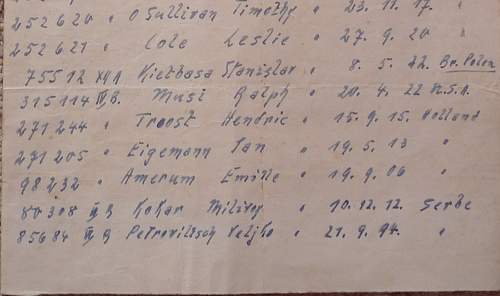 252620 " O Sullivan Timothy " 23. 11. 17. "
252621 " Cole Leslie " 27. 9. 20 "
75512 XVII Kietbasa Stanislav " 8. 5. 22. Br. Polen
315114 IV B. Musi Ralph " 20. 4. 22 U.S.A.
271244 " Troost Hendric " 15. 9. 15. Holland
271205 " Eigemann Jan " 19. 5. 13 "
98232 " Amerum Emile " 19. 9. 06 "
80308 III B Kokar Milivoj " 10. 12. 12. Serbe
85684 III B Petrovitsch Veljko " 21. 9. 94. "